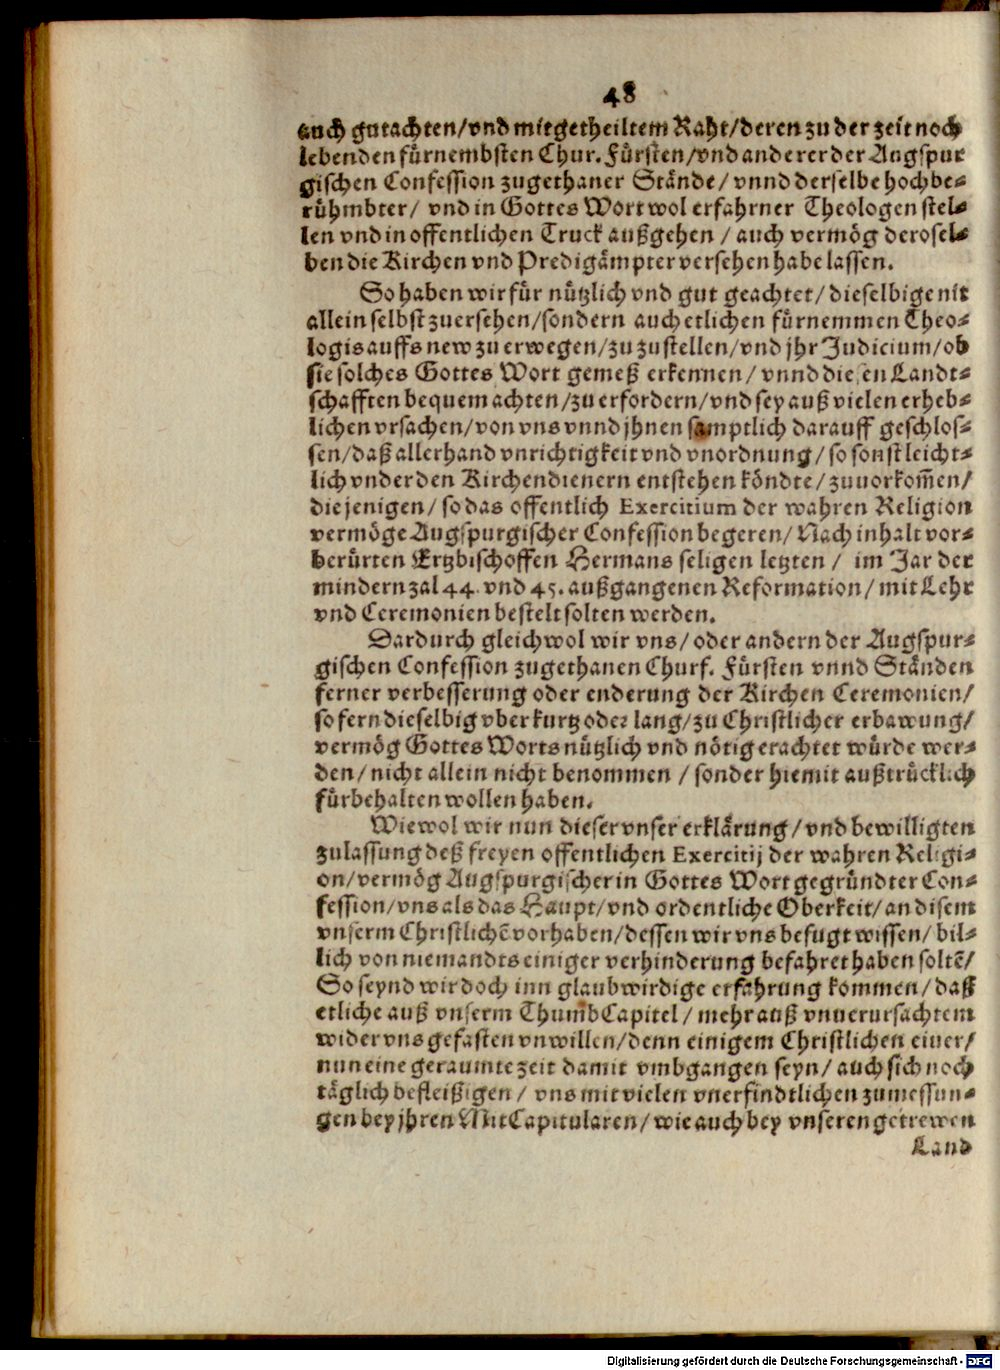 48
auch gutachten/vnd mitgetheiltem Raht/deren zu der zeit noch
lebenden fürnembsten Chur. Fürsten/vnd anderer der Augspur
gischen Confession zugethaner Stände/ vnnd derselbe hochbe-
rühmbter/ vnd in Gottes Wort wol erfahrner Theologen stel-
len vnd in offentlichen Truck außgehen / auch vermög derosel-
ben die Kirchen vnd Predigämpter versehen habe lassen.
So haben wir für nützlich vnd gut geachtet/ dieselbige nit
allein selbst zuersehen/sondern auch etlichen fürnemmen Theo-
logis auffs new zu erwegen/zu zustellen/vnd jhr Judicium/ob
sie solches Gottes Wort gemeß erkennen/ vnnd diesen Landt-
schafften bequem achten/zu erfordern/vnd sey auß vielen erheb-
lichen vrsachen/von vns vnnd jhnen samptlich darauff geschlos-
sen/daß allerhand vnrichtigkeit vnd vnordnung/ so sonst leicht-
lich vnder den Kirchendienern entstehen köndte/ zuuorkom̃en/
die jenigen/ so das offentlich Exercitium der wahren Religion
vermöge Augspurgischer Confession begeren/ Nach inhalt vor-
berürten Ertzbischoffen Hermans seligen letzten / im Jar der
mindern zal 44. vnd 45. außgangenen Reformation/ mit Lehr
vnd Ceremonien bestelt solten werden.
Dardurch gleichwol wir vns/ oder andern der Augspur-
gischen Confession zugethanen Churf. Fürsten vnnd Ständen
ferner verbesserung oder enderung der Kirchen Ceremonien/
so fern dieselbig vber kurtz oder lang/zu Christlicher erbawung/
vermög Gottes Worts nützlich vnd nötig erachtet würde wer-
den/ nicht allein nicht benommen / sonder hiemit außtrücklich
fürbehalten wollen haben.
Wiewol wir nun dieser vnser erklärung/ vnd bewilligten
zulassung deß freyen offentlichen Exercitij der wahren Religi-
on/vermög Augspurgischer in Gottes Wort gegründter Con-
fession/vns als das Haupt/vnd ordentliche Oberkeit/an disem
vnserm Christlichē vorhaben/dessen wir vns befugt wissen/ bil-
lich von niemandts einiger verhinderung befahret haben soltē/
So seynd wir doch inn glaubwirdige erfahrung kommen/ daß
etliche auß vnserm ThumbCapitel / mehr auß vnuerursachtem
wider vns gefasten vnwillen/denn einigem Christlichen eiuer/
nun eine geraumte zeit damit vmbgangen seyn/ auch sich noch
täglich befleißigen / vns mit vielen vnerfindtlichen zumessun-
gen bey jhren MitCapitularen/ wie auch bey vnseren getrewen
Land
Digitalisierung gefördert durch die Deutsche Forschungsgemeinschaft - DFG